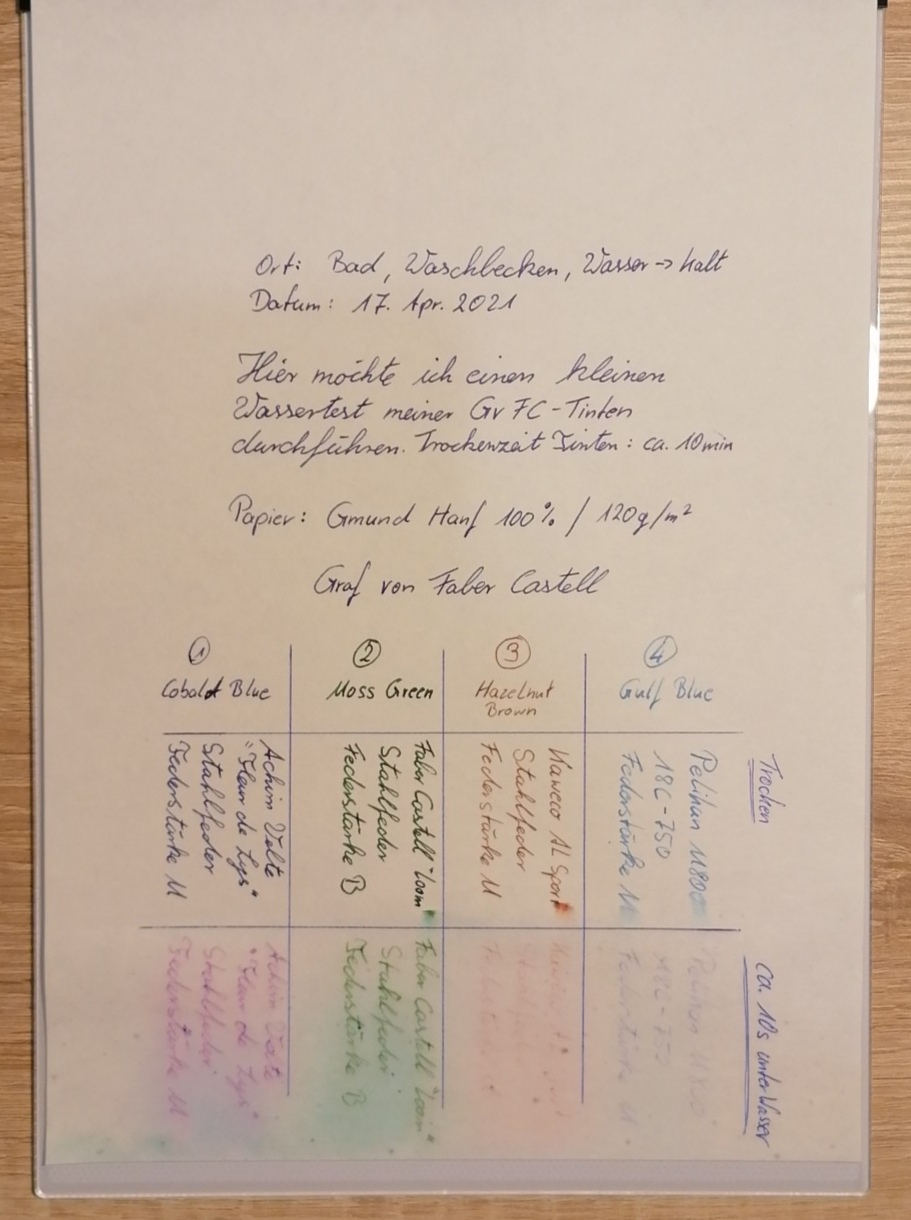 Ort: Bad, Waschbecken, Wasser → kalt
Datum: 17. Apr. 2021
Hier möchte ich einen kleinen
Wassertest meiner GvFC-Tinten
durchführen. Trockenzeit Tinten: ca. 10min
Papier: Gmund Hanf 100% / 120g/m²
Graf von Faber Castell
1
Cobald Blue
2
Moss Green
3
Hazelnut
Brown
4
Gulf Blue
Achim Velte
"Fleur de Lys"
Stahlfeder
Federstärke M
Faber Castell "Loom"
Stahlfeder
Federstärke B
Kaweco AL Sport
Stahlfeder
Federstärke M
Pelikan M800
18C-750
Federstärke M
Trocken
Stahlfeder
Federstärke M
Faber Castell "Loom"
Stahlfeder
Federstärke B
Stahlfeder
Pelikan M800
18C-750
Federstärke M
ca. 10s unter Wasser